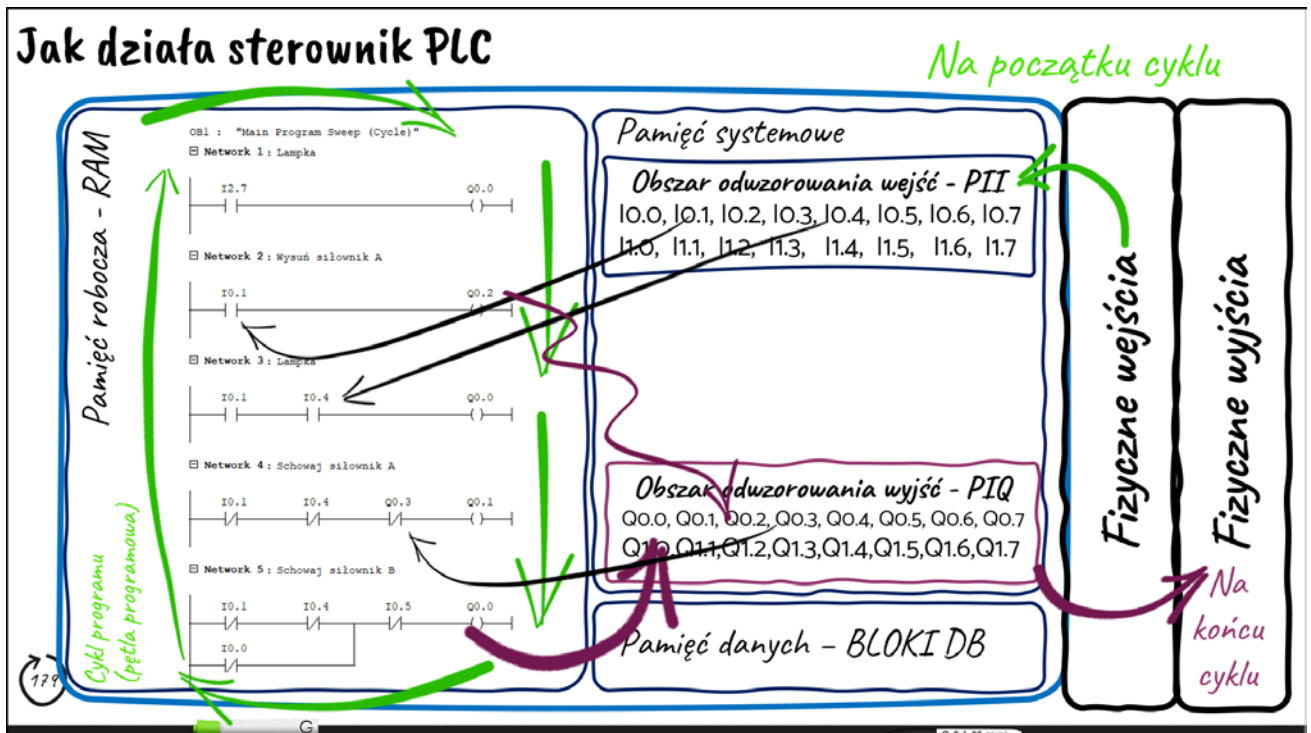 Jak działa sterownik PLC
Na początku cyklu
Pamięć robocza - RAM
Cykl programu
(pętla programowa)
OB1 : "Main Program Sweep (Cycle)"
Network 1 : Lampka
I2.7 Q0.0
Network 2 : Wysuń siłownik A
I0.1 Q0.2
Network 3 : Lampka
I0.1 I0.4 Q0.0
Network 4 : Schowaj siłownik A
I0.1 I0.4 Q0.3 Q0.1
Network 5 : Schowaj siłownik B
I0.1 I0.4 I0.5 Q0.0
I0.0
Pamięć systemowe
Obszar odwzorowania wejść - PII
I0.0, I0.1, I0.2, I0.3, I0.4, I0.5, I0.6, I0.7
I1.0, I1.1, I1.2, I1.3, I1.4, I1.5, I1.6, I1.7
Obszar odwzorowania wyjść - PIQ
Q0.0, Q0.1, Q0.2, Q0.3, Q0.4, Q0.5, Q0.6, Q0.7
Q1.0,Q1.1,Q1.2,Q1.3,Q1.4,Q1.5,Q1.6,Q1.7
Pamięć danych – BLOKI DB
Fizyczne wejścia
Fizyczne wyjścia
Na
końcu
cyklu
179
G